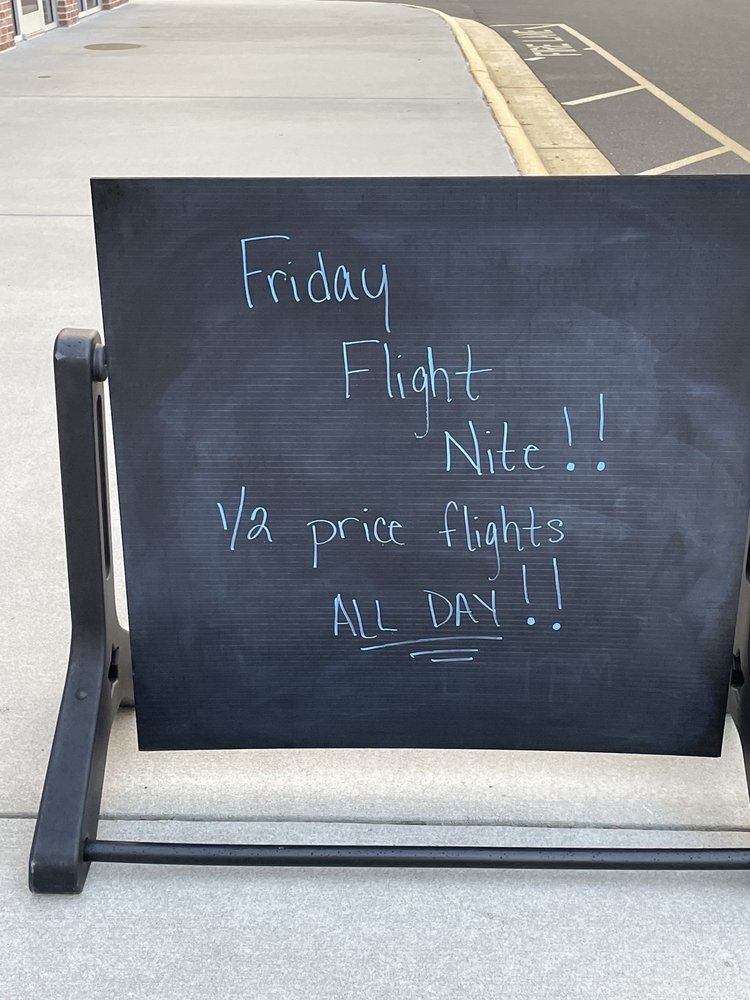 FIRE LANE
Friday
Flight
Nite!!
1/2 price flights
ALL DAY!!